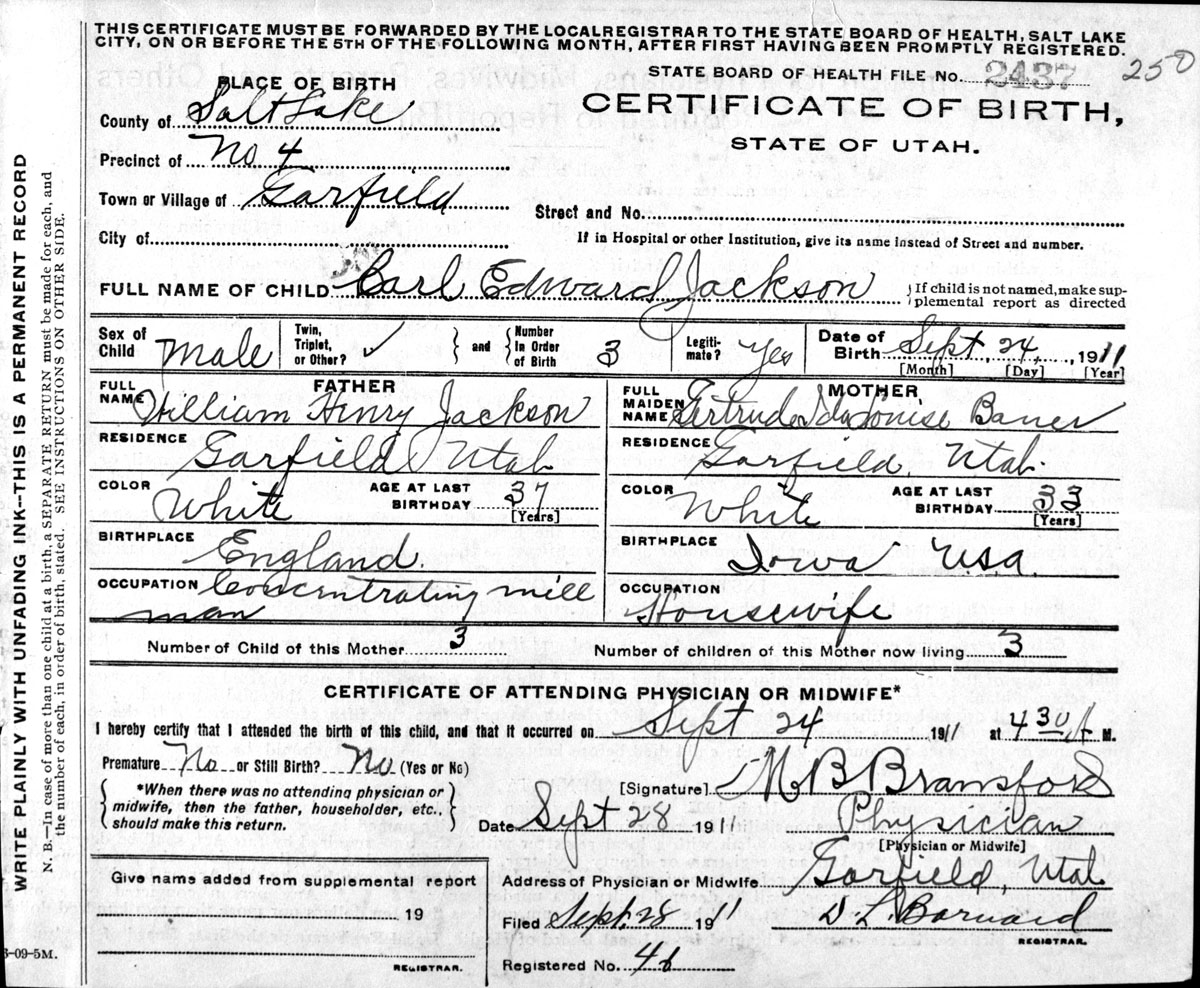 THIS CERTIFICATE MUST BE FORWARDED BY THE LOCALREGISTRAR TO THE STATE BOARD OF HEALTH, SALT LAKE
CITY, ON OR BEFORE THE 5TH OF THE FOLLOWING MONTH, AFTER FIRST HAVING BEEN PROMPTLY REGISTERED.
PLACE OF BIRTH
STATE BOARD OF HEALTH FILE No. 2437 250
County of Salt Lake
CERTIFICATE OF BIRTH,
STATE OF UTAH.
Precinct of No 4
Town or Village of Garfield
Street and No.
City of
If in Hospital or other Institution, give its name instead of Street and number.
FULL NAME OF CHILD Carl Edward Jackson
If child is not named, make sup-
plemental report as directed
Sex of Child Male Twin, Triplet, or Other? ✓ and Number In Order of Birth 3 Legiti-mate? Yes Date of Birth Sept, 24, 1911
[Month] [Day] [Year]
FATHER
FULL NAME William Henry Jackson
RESIDENCE Garfield Utah
COLOR White AGE AT LAST BIRTHDAY 37
[Years]
BIRTHPLACE England.
OCCUPATION Concentrating mill
man
MOTHER
FULL MAIDEN NAME Gertrude Ida Louise Bauer
RESIDENCE Garfield, Utah.
COLOR White AGE AT LAST BIRTHDAY 33
[Years]
BIRTHPLACE Iowa U.S.A.
OCCUPATION Housewife
Number of Child of this Mother 3 Number of children of this Mother now living 3
CERTIFICATE OF ATTENDING PHYSICIAN OR MIDWIFE*
I hereby certify that I attended the birth of this child, and that it occurred on Sept 24 1911 at 4 30 A M.
Premature No or Still Birth? No (Yes or No)
*When there was no attending physician or
midwife, then the father, householder, etc.,
should make this return.
[Signature] M B Bransford
Date Sept 28 1911 Physician
[Physician or Midwife]
Give name added from supplemental report
19
REGISTRAR.
Address of Physician or Midwife Garfield, Utah
Filed Sept. 28 1911 D L. Barnard
REGISTRAR.
Registered No. 46
WRITE PLAINLY WITH UNFADING INK--THIS IS A PERMANENT RECORD
N. B.—In case of more than one child at a birth, a SEPARATE RETURN must be made for each, and
the number of each, in order of birth, stated. SEE INSTRUCTIONS ON OTHER SIDE.
3-09-5M.